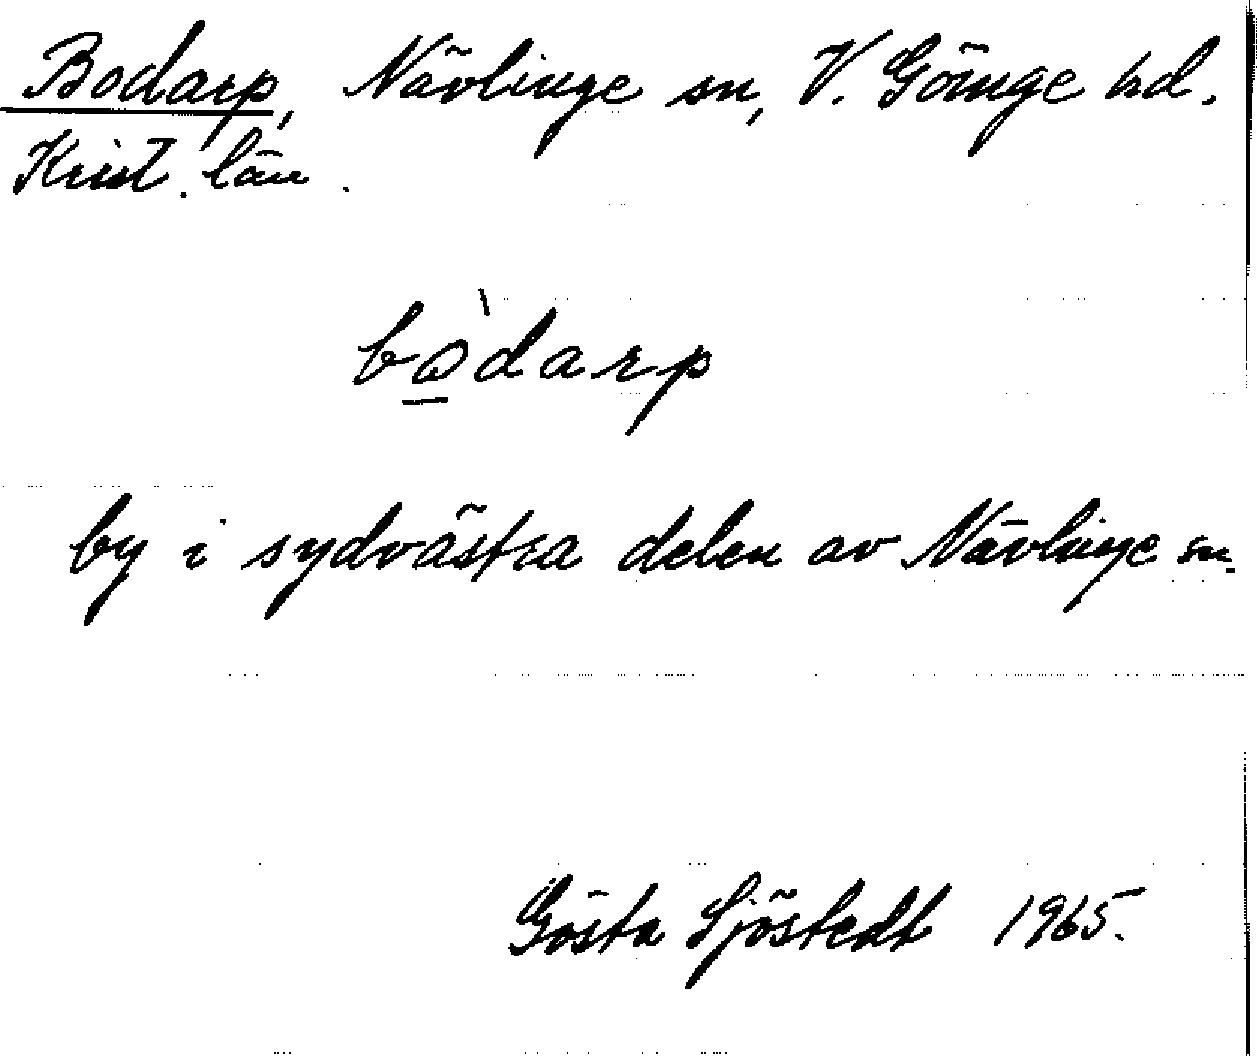 Bodarp, Nävlinge sn, V. Göinge hd.
Krist. län.
bò̲darp
by i sydvästra delen av Nävlinge sn.
Gösta Sjöstedt 1965.